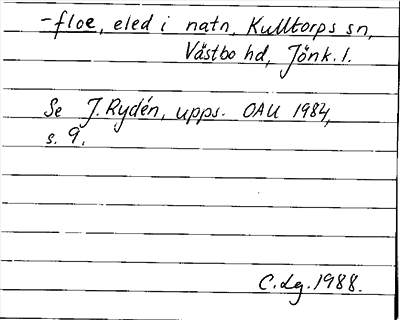 -floe, eled i natn, Kulltorps sn,
Västbo hd, Jönk. l.
Se J. Rydén, upps. OAU 1984,
s. 9.
C. Lg. 1988.